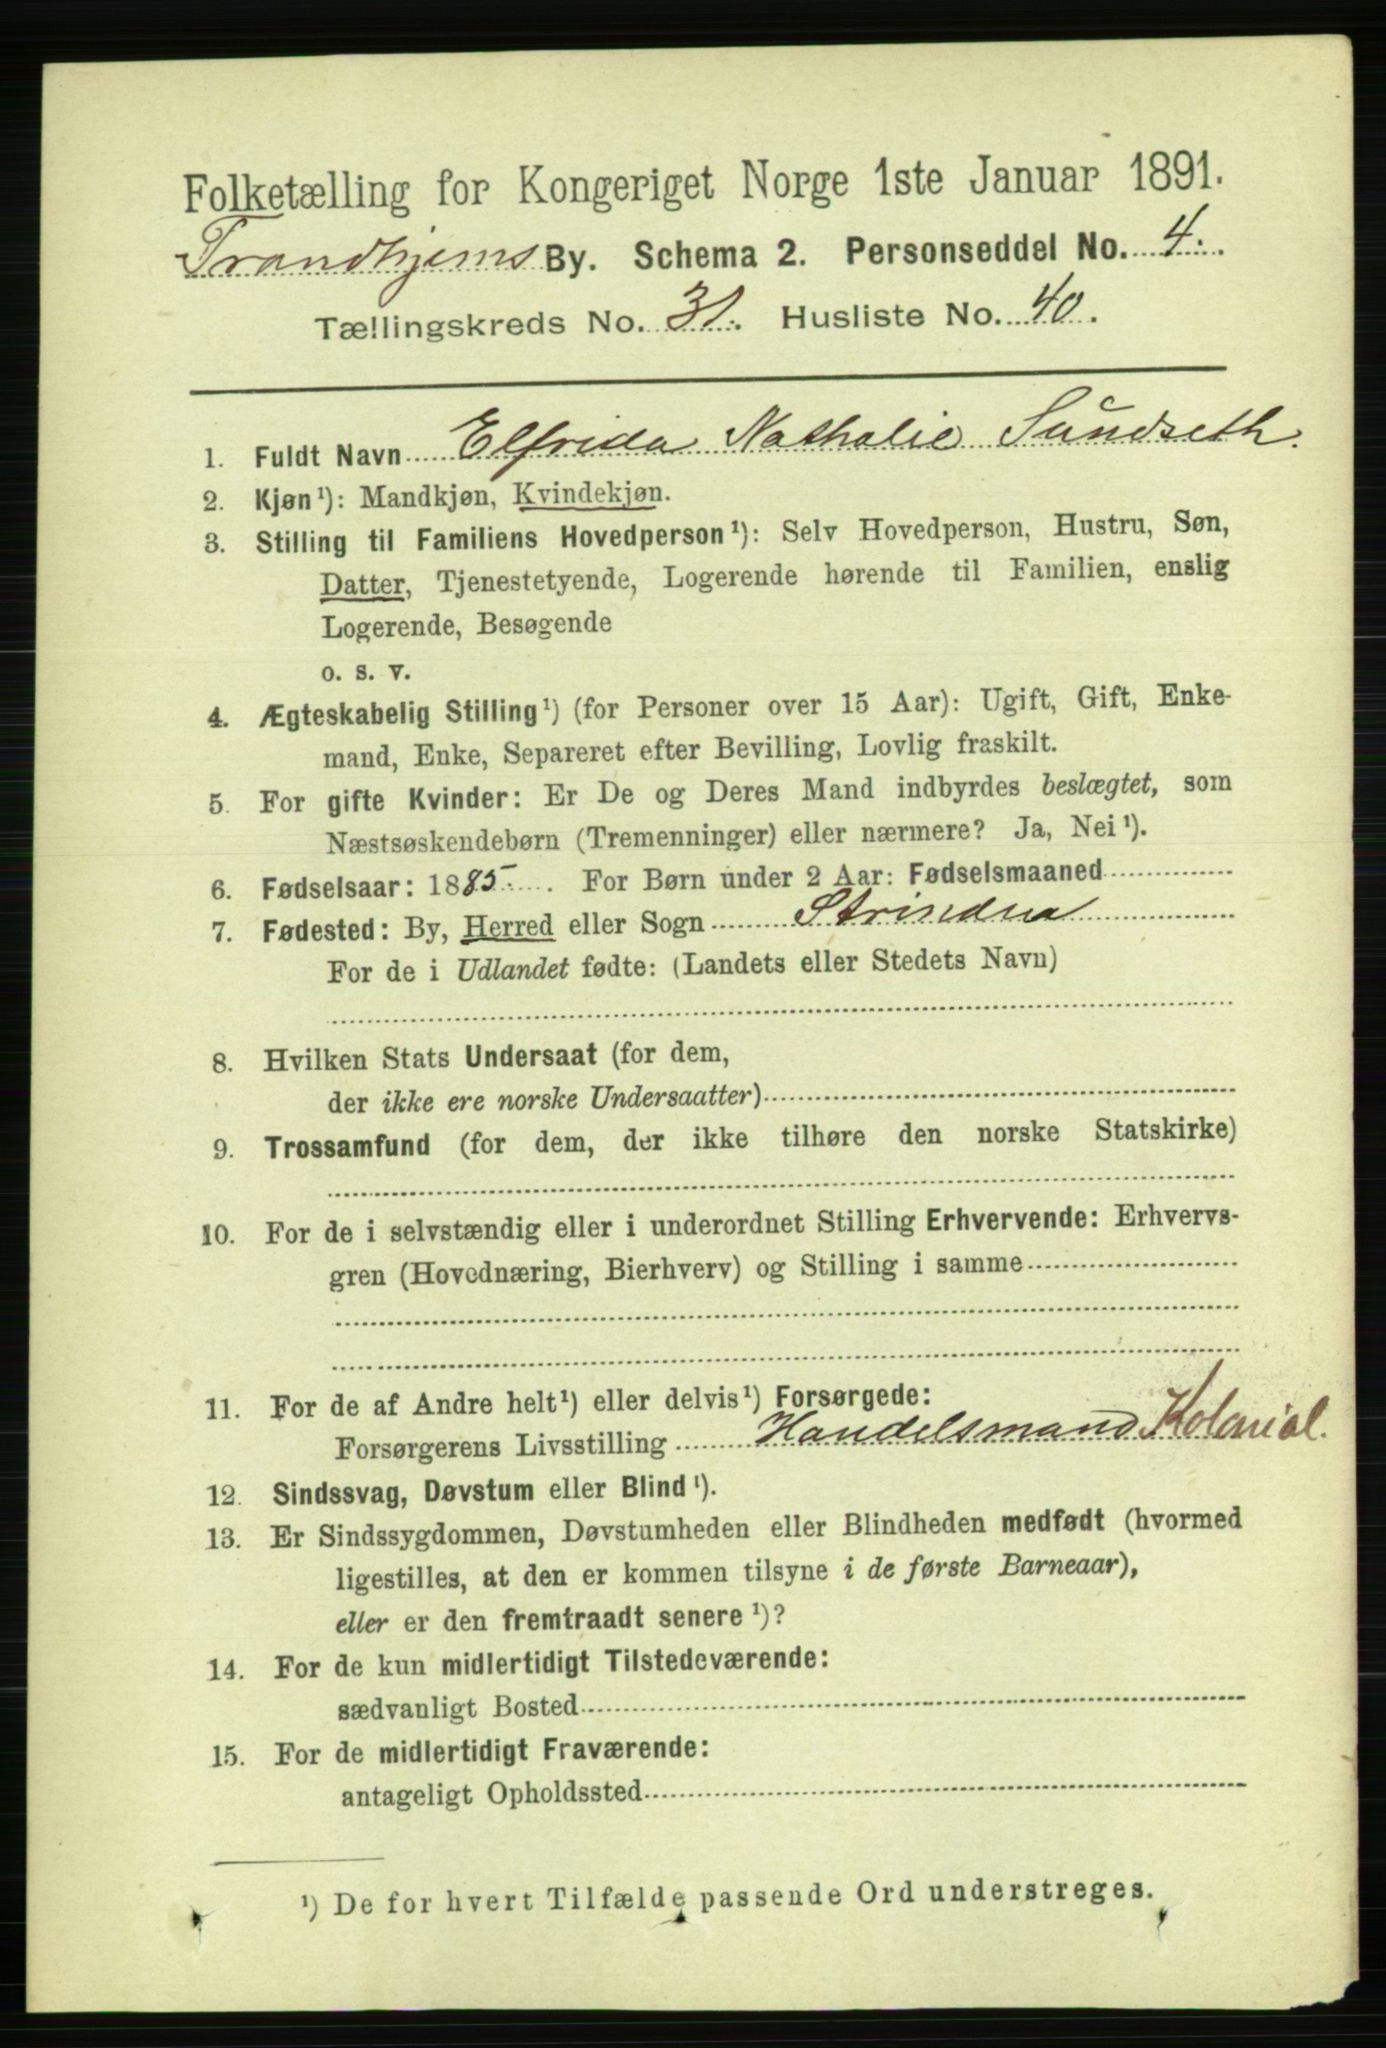 Folketælling for Kongeriget Norge 1ste Januar 1891.
Trondhjems By. Schema 2. Personseddel No. 4.
Tællingskreds No. 31. Husliste No. 40.
1. Fuldt Navn Elfrida Nathalie Sundseth.
2. Kjøn¹): Mandkjøn, Kvindekjøn.
3. Stilling til Familiens Hovedperson¹): Selv Hovedperson, Hustru, Søn,
Datter, Tjenestetyende, Logerende hørende til Familien, enslig
Logerende, Besøgende
o. s. v.
4. Ægteskabelig Stilling¹) (for Personer over 15 Aar): Ugift, Gift, Enke-
mand, Enke, Separeret efter Bevilling, Lovlig fraskilt.
5. For gifte Kvinder: Er De og Deres Mand indbyrdes beslægtet, som
Næstsøskendebørn (Tremenninger) eller nærmere? Ja, Nei¹).
6. Fødselsaar: 1885. For Børn under 2 Aar: Fødselsmaaned
7. Fødested: By, Herred eller Sogn Strinden
For de i Udlandet fødte: (Landets eller Stedets Navn)
8. Hvilken Stats Undersaat (for dem,
der ikke ere norske Undersaatter)
9. Trossamfund (for dem, der ikke tilhøre den norske Statskirke)
10. For de i selvstændig eller i underordnet Stilling Erhvervende: Erhvervs-
gren (Hovednæring, Bierhverv) og Stilling i samme
11. For de af Andre helt¹) eller delvis¹) Forsørgede:
Forsørgerens Livsstilling Handelsmand Kolonial.
12. Sindssvag, Døvstum eller Blind¹).
13. Er Sindssygdommen, Døvstumheden eller Blindheden medfødt (hvormed
ligestilles, at den er kommen tilsyne i de første Barneaar),
eller er den fremtraadt senere¹)?
14. For de kun midlertidigt Tilstedeværende:
sædvanligt Bosted
15. For de midlertidigt Fraværende:
antageligt Opholdssted
¹) De for hvert Tilfælde passende Ord understreges.